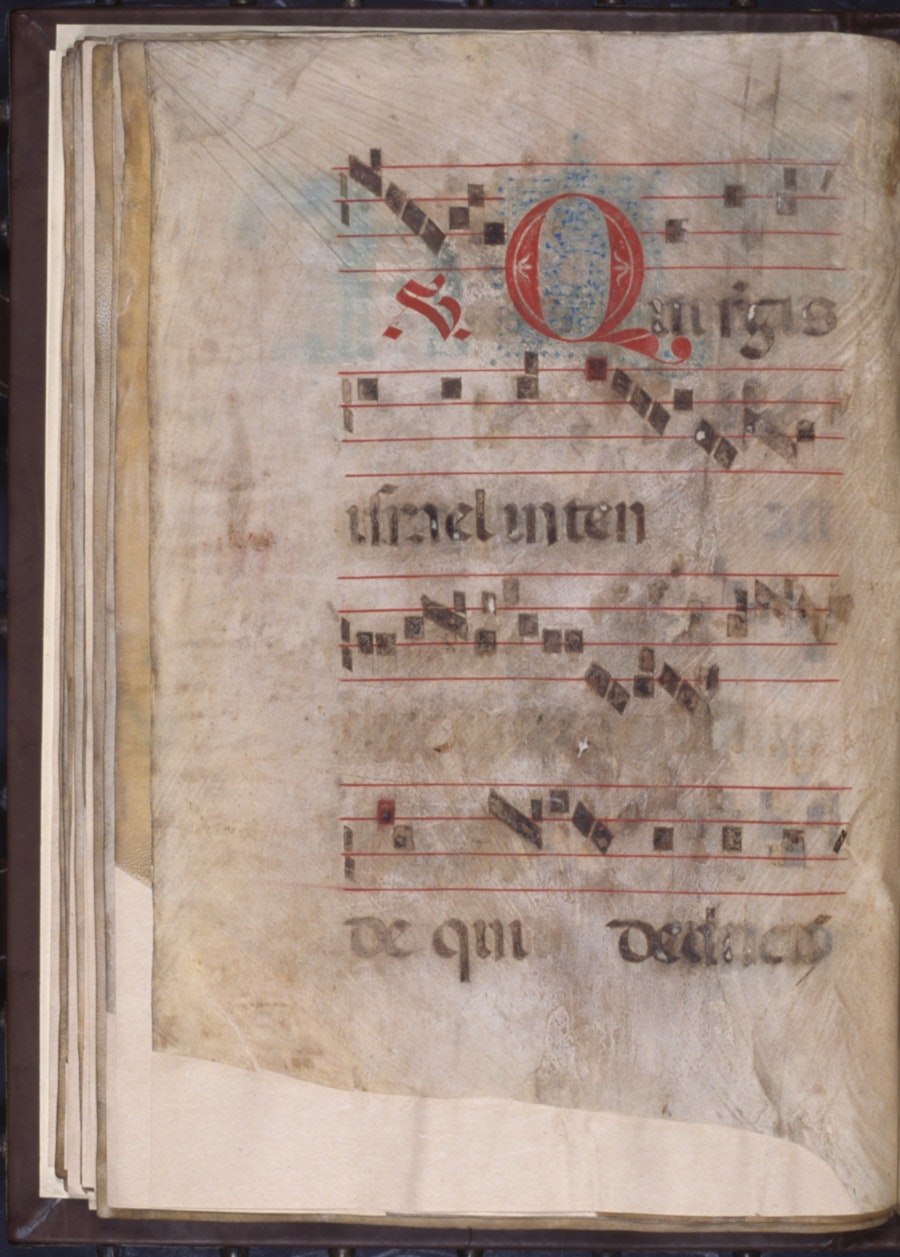 ℣. Qui regis
isrrael inten
de qui deducis